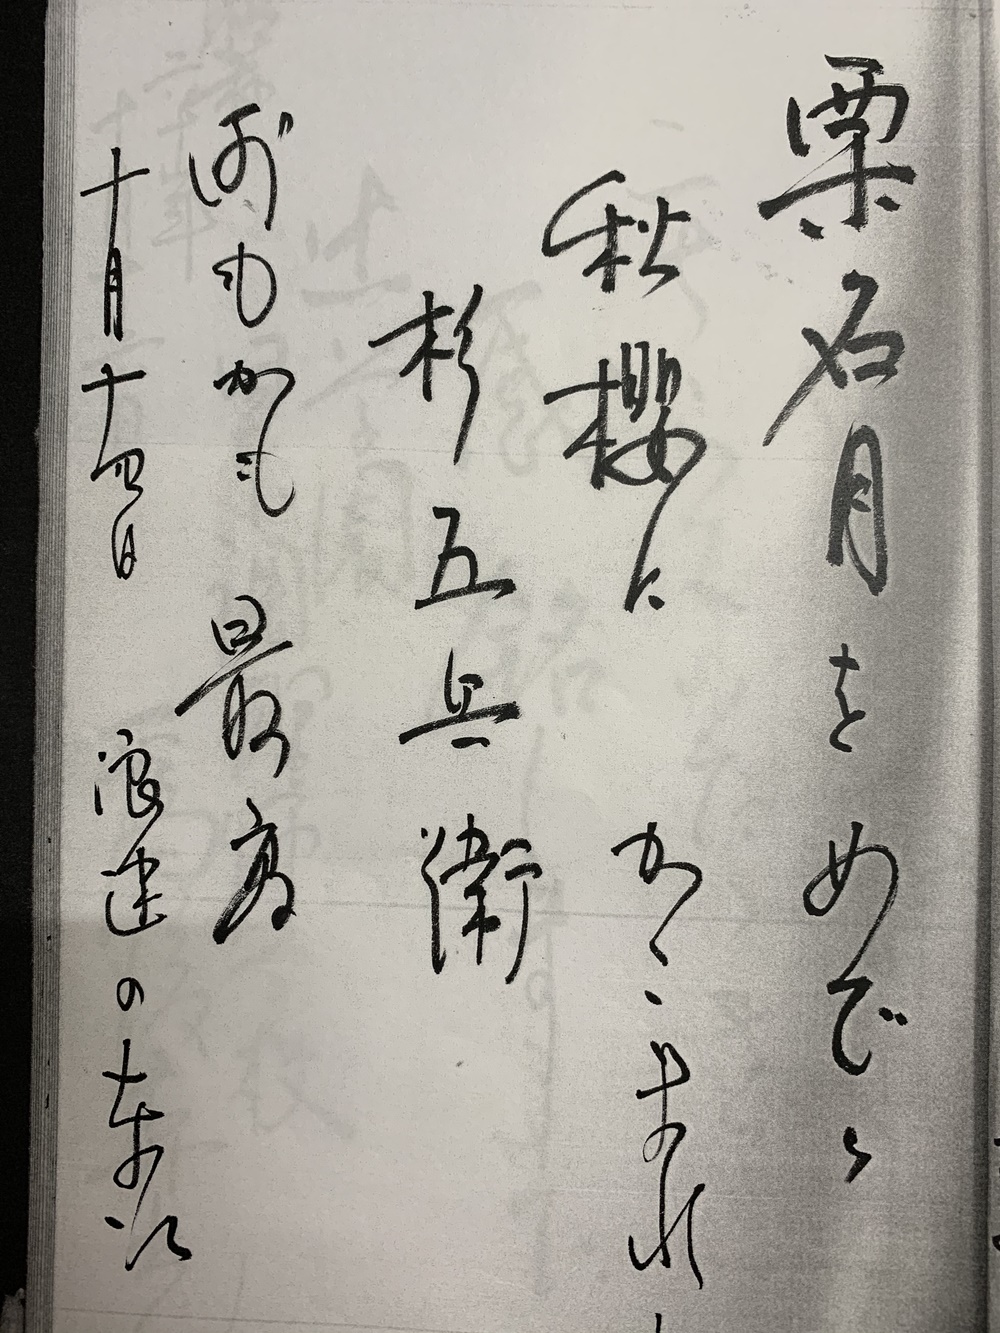 栗名月をめでつ
秋櫻にかこまれ
杉五兵衛
何もかも最高
十月十四日 浪速の春次